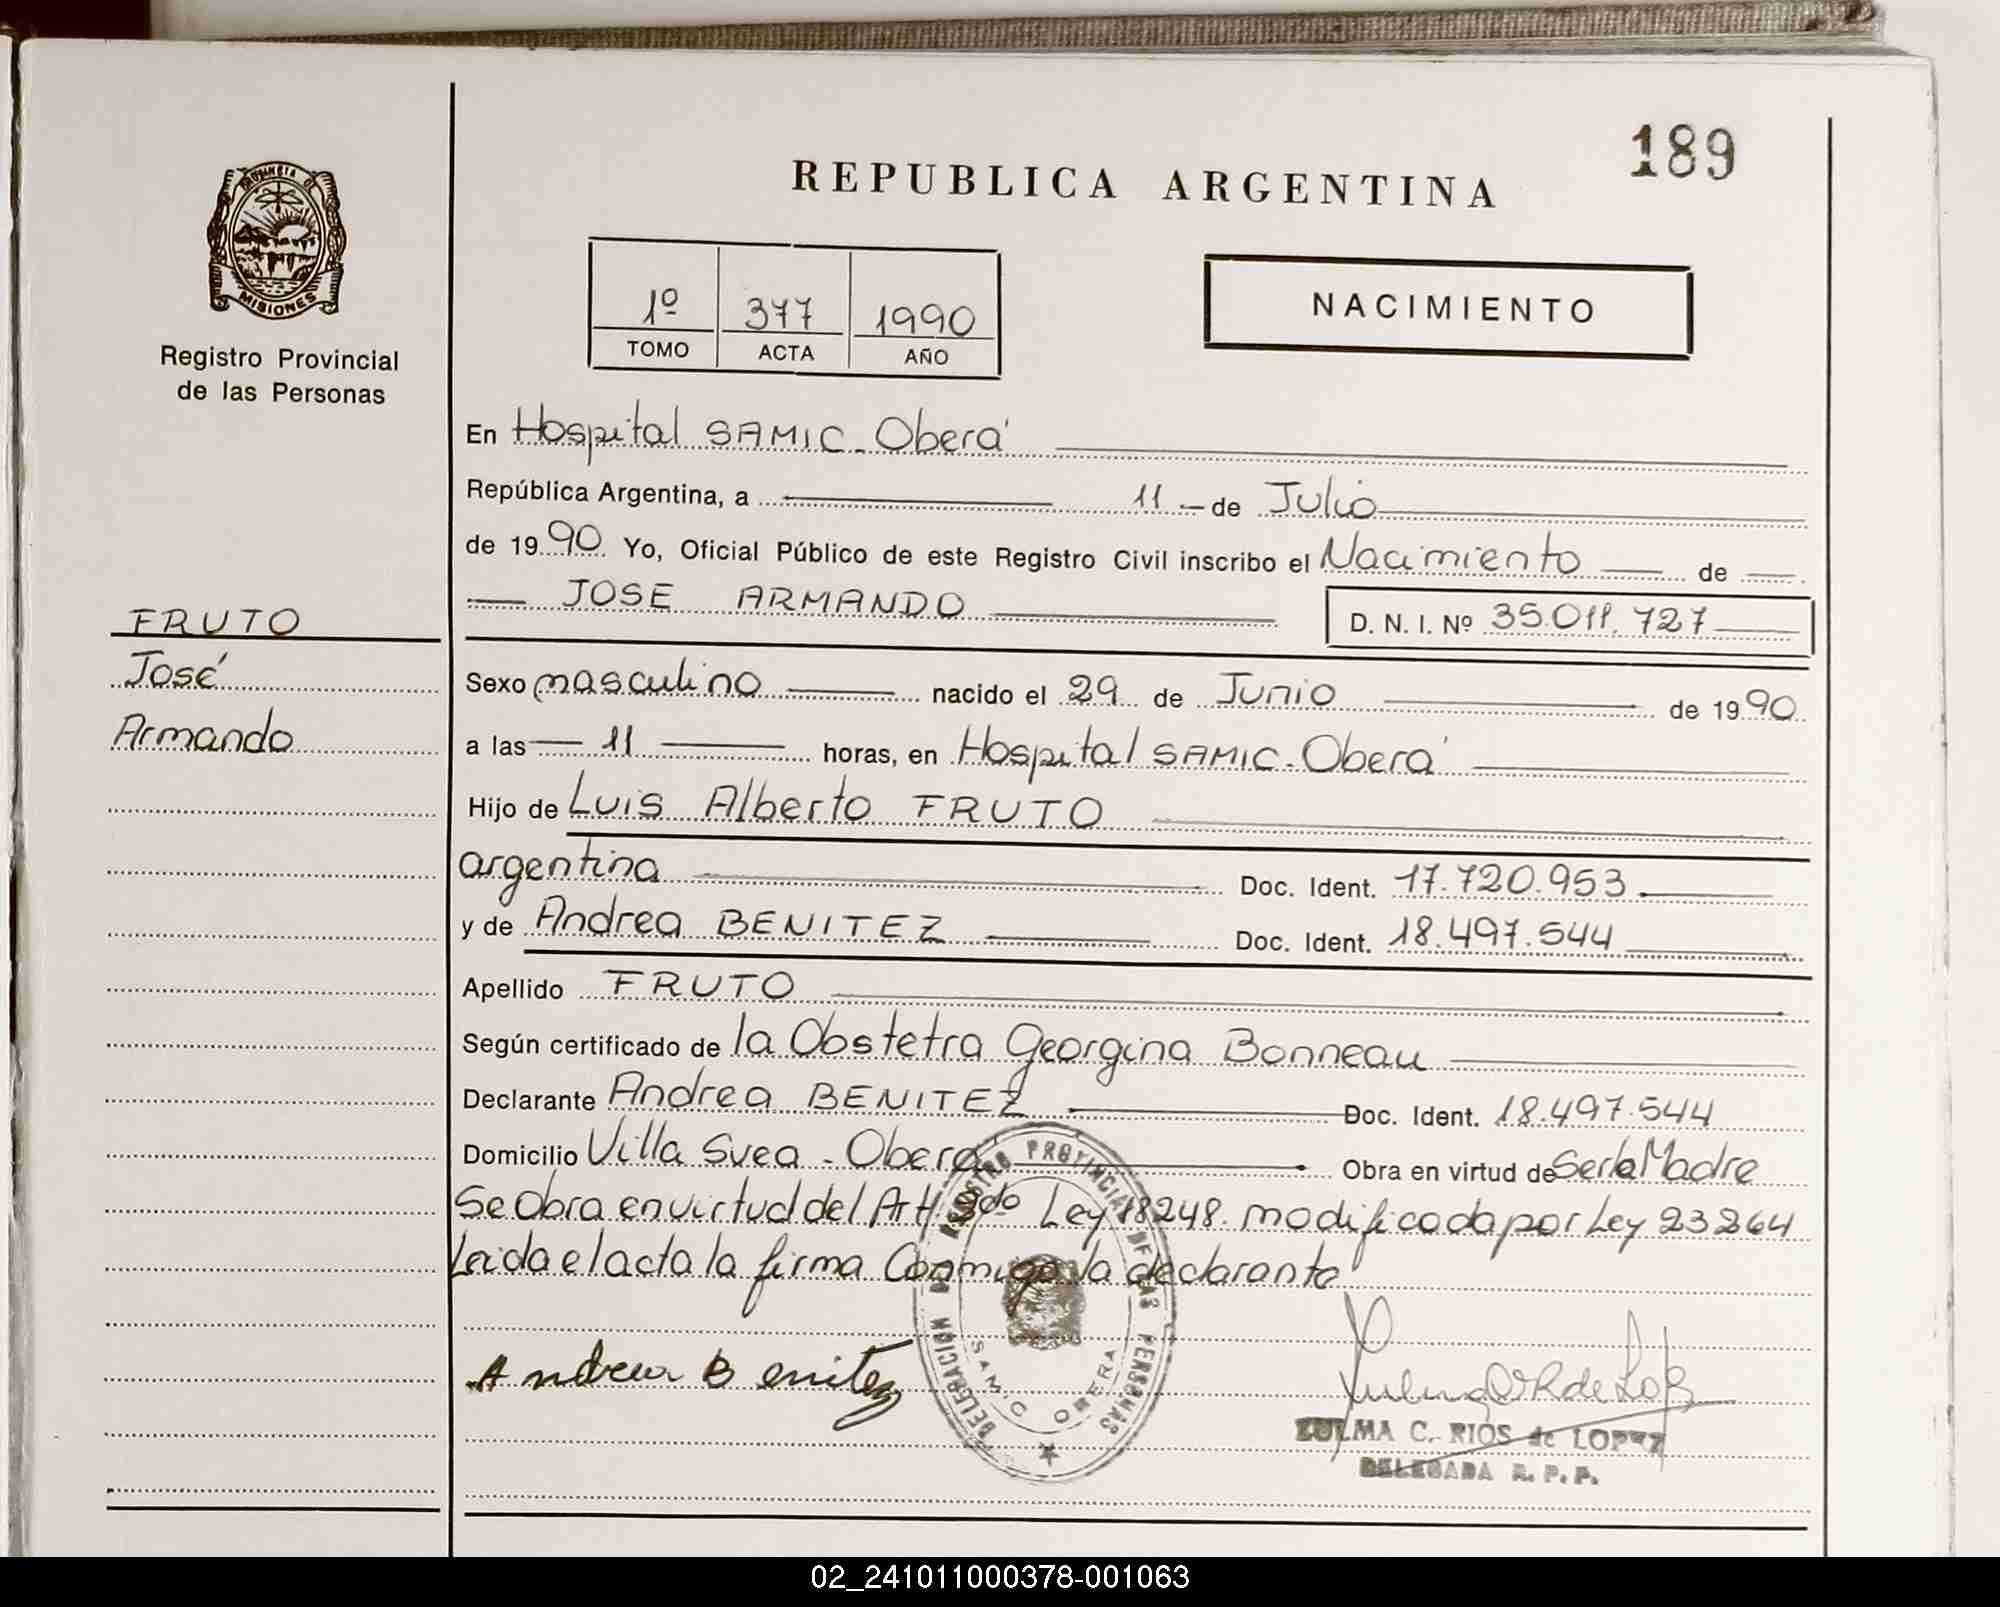 189
REPUBLICA ARGENTINA
PROVINCIA DE
MISIONES
Registro Provincial
de las Personas
1º 377 1990
TOMO ACTA AÑO
NACIMIENTO
En Hospital SAMIC - Oberá
República Argentina, a 11 - de Julio
de 1990 Yo, Oficial Público de este Registro Civil inscribo el Nacimiento de
JOSE ARMANDO D. N. I. Nº 35.011.727
FRUTO
José
Armando
Sexo masculino nacido el 29 de Junio de 1990
a las 11 horas, en Hospital SAMIC - Oberá
Hijo de Luis Alberto FRUTO
argentina Doc. Ident. 17.720.953
y de Andrea BENITEZ Doc. Ident. 18.497.544
Apellido FRUTO
Según certificado de la Obstetra Georgina Bonneau
Declarante Andrea BENITEZ Doc. Ident. 18.497.544
Domicilio Villa Svea - Oberá Obra en virtud de Ser la Madre
Se Obra en virtud del Art. Ley 18248 modificada por Ley 23264
Leida el acta la firma Conmigo la declarante
DELEGACION DEL REGISTRO PROVINCIAL DE LAS PERSONAS
SAMIC OBERA
Andrea Benitez
ZULMA C. RIOS de LOPEZ
DELEGADA R. P. P.
02_241011000378-001063